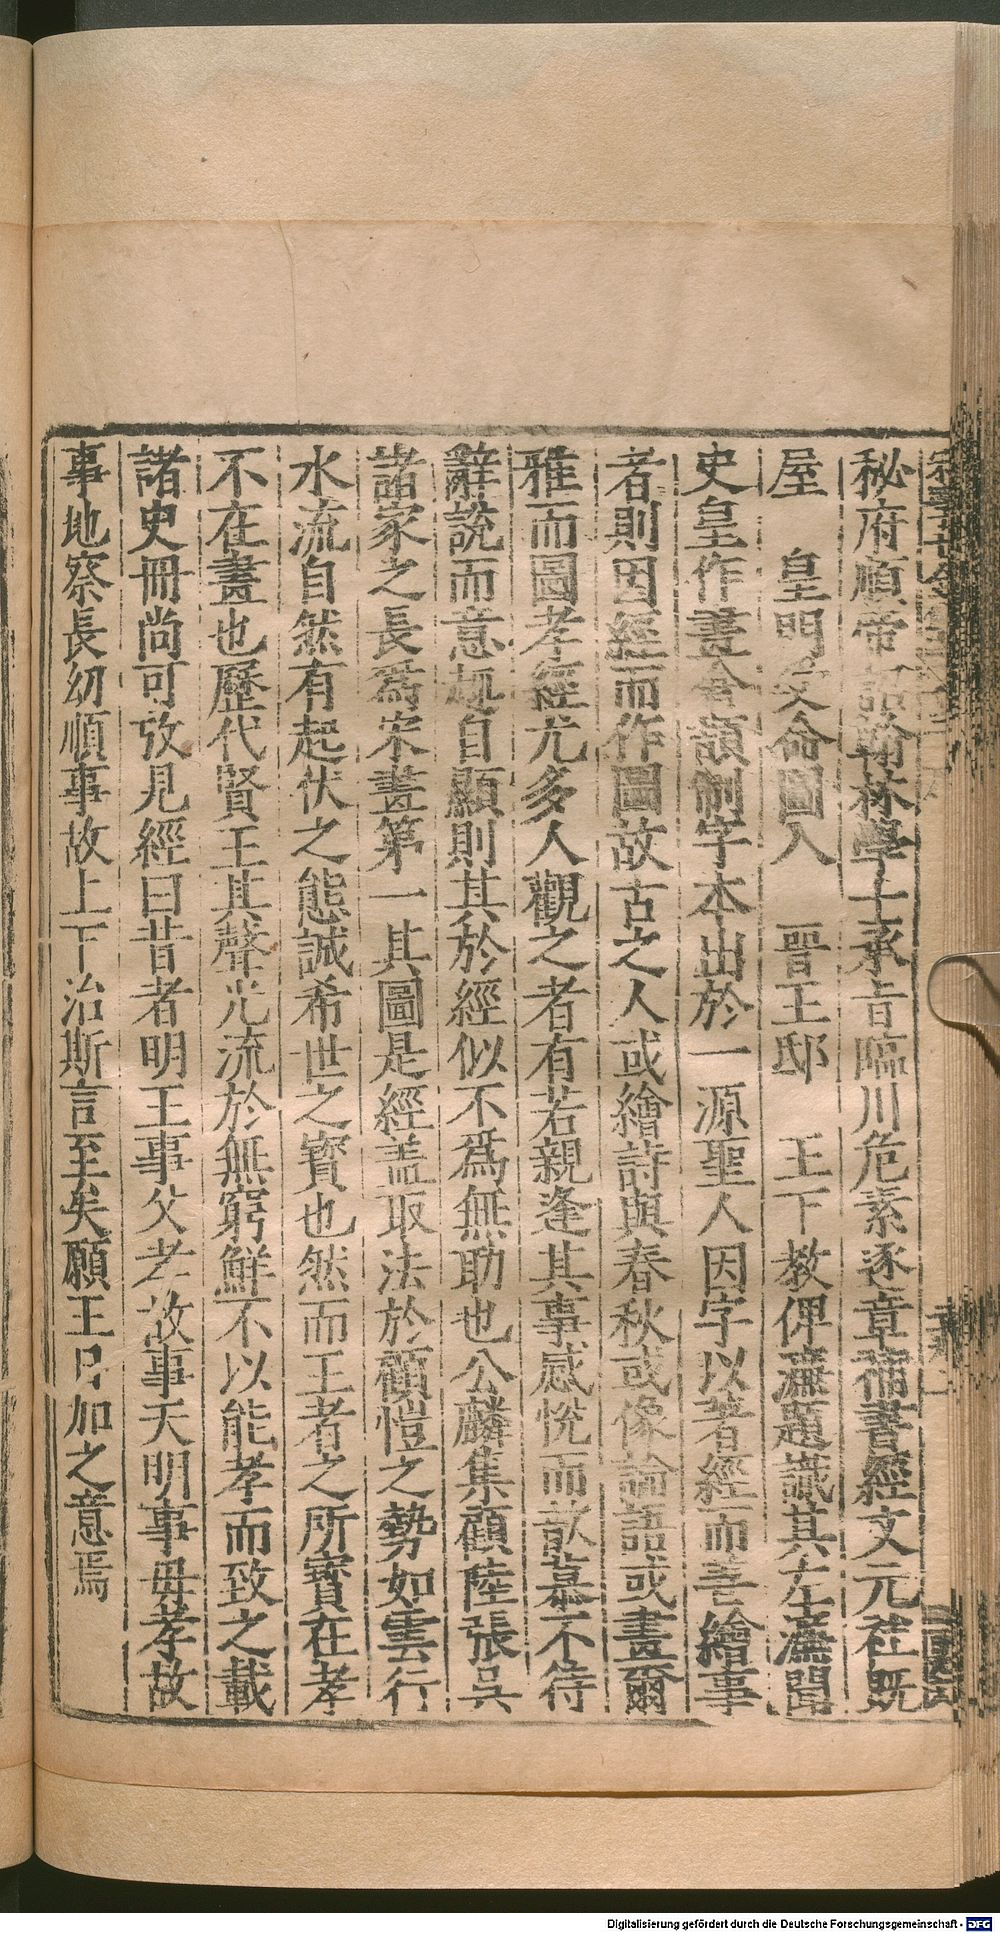 秘府順帝詔翰林學士承旨臨川危素逐章補書經文元社既
屋　皇明受命圖入　晉王邸　王下教俾濂題識其左濂聞
史皇作畫倉頡制字本出於一源聖人因字以著經而善繪事
者則因經而作圖故古之人或繪詩與春秋或像論語或畫爾
雅而圖孝經尤多人觀之者有若親逢其事感悅而歆慕不待
辭說而意趣自顯則其於經似不為無助也公麟集顧陸張吳
諸家之長爲宋畫第一其圖是經蓋取法於顧愷之勢如雲行
水流自然有起伏之態誠希世之寶也然而王者之所寶在孝
不在畫也歷代賢王其聲光流於無窮鮮不以能孝而致之載
諸史冊尚可攷見經曰昔者明王事父孝故事天明事毋孝故
事地察長幼順事故上下治斯言至矣願王日加之意焉
Digitalisierung gefördert durch die Deutsche Forschungsgemeinschaft - DFG